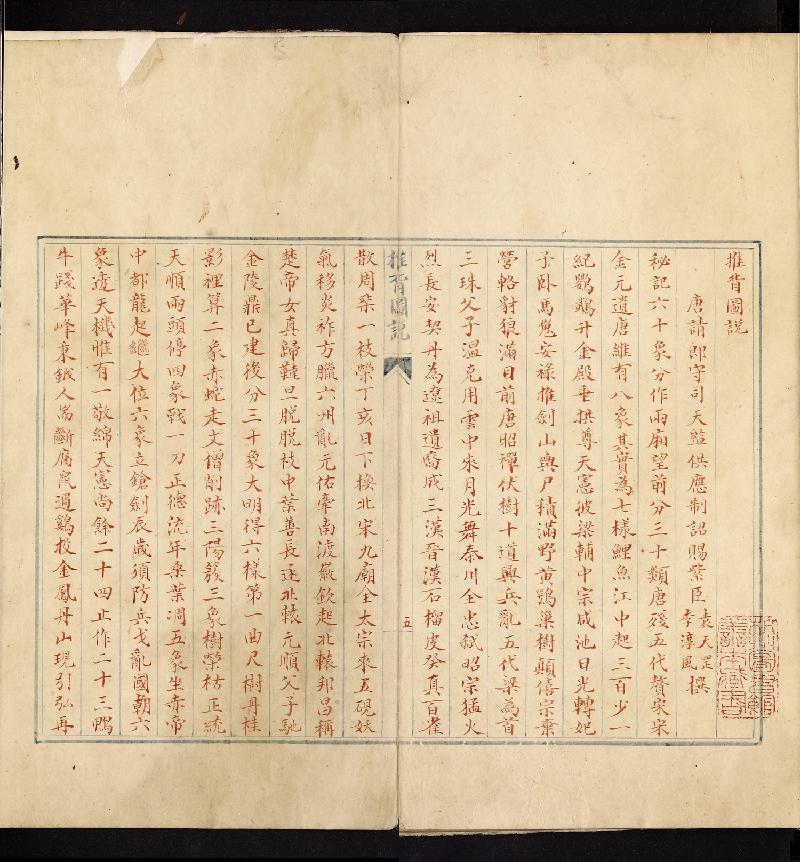 推背圖説
唐請郎守司天監供應制詔賜紫臣 袁天罡 李淳風 撰
秘記六十象分作兩廂望前分三十類唐殘五代贅宋宋
金元遺唐維有八象其實為七樣鯉魚江中起三百少一
紀鸚鵡升金殿垂拱尊天憲彼梁輔中宗咸池日光轉妃
子卧馬嵬安祿推劍山輿尸積滿野黄鶚巢樹顛僖宗棄
營輅豺狼滿目前唐昭禪伏樹十道興兵亂五代梁為首
三珠父子溫克用雲中來月光舞秦川全忠弑昭宗猛火
烈長安契丹為遼祖遺喬威三漢晉漢石榴皮癸真百雀
推背圖説
五
散周柴一枝榮丁亥日下楼北宋九廟全太宗來五硯妖
氣移炎祚方臘六州亂元佑牽南渡徽欽起北轅邦昌稱
楚帝女真歸韃旦脱脱枝中葉善長逐北轅元順父子馳
金陵鼎已建後分三十象大明得六樣第一曲尺樹丹桂
影裡算二象赤蛇走文僧削跡三陽簇三象樹榮枯正統
天順兩頭停四象戰一刀正德流年桑葉凋五象坐赤帝
中都龍起繼大位六象立鎗劍辰歲須防兵戈亂國朝六
象透天機惟有一敬綿天憲尚餘二十四止作二十三鴨
牛踐華峰秉鉞人耑斷腐鼠過鷄投金鳳丹山現引弘再